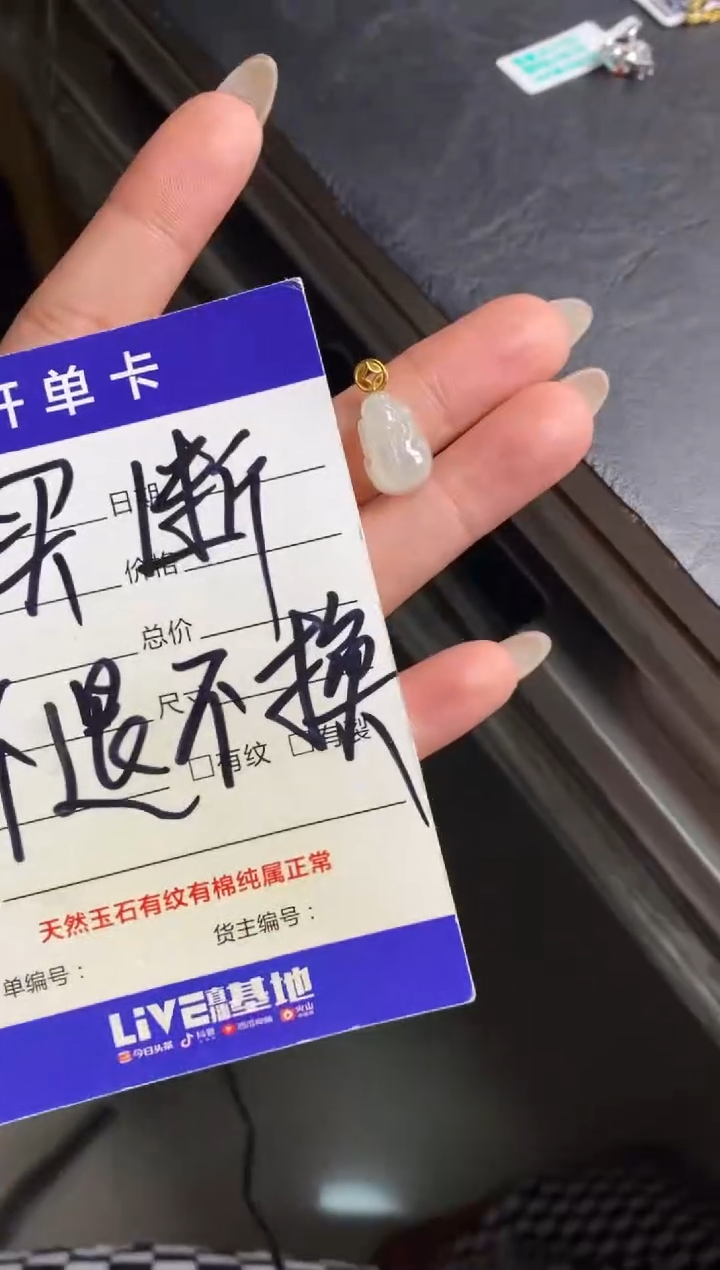 开单卡
买断
日期
价格
总价
不退不换
尺寸
□有纹 □有裂
天然玉石有纹有棉纯属正常
货主编号：
单编号：
LiVE直播基地
今日头条 抖音 西瓜视频 火山